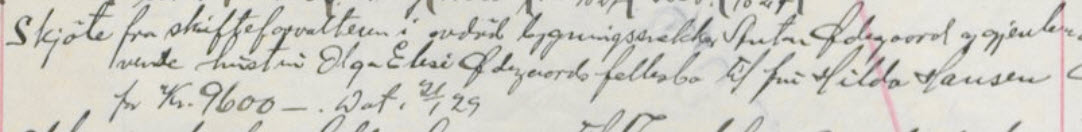 Skjöte fra skifteforvalteren i avdöd bygningssnekker Anton Ødegaard og gjenle-
vende hustru Olga Elise Ødegaards fellesbo til fru Hilda Hansen
for Kr. 9600 —. Dat. 21/1 29